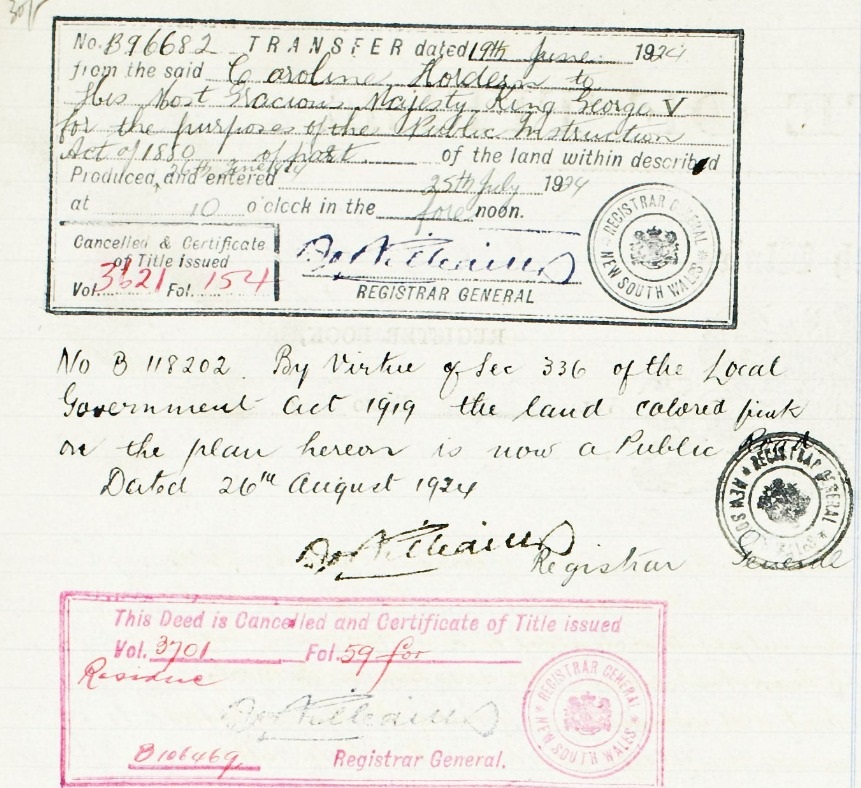 No. B96682 TRANSFER dated 19th June 1924
from the said Caroline Hordern to
His Most Gracious Majesty King George V
for the purposes of the Public Instruction
Act of 1880 of part of the land within described
26th June 1924
Produced and entered 25th July 1924
at 10 o'clock in the fore noon.
Cancelled & Certificate
of Title issued
Vol. 3621 Fol. 154
REGISTRAR GENERAL
REGISTRAR GENERAL
NEW SOUTH WALES
No B 118202. By Virtue of Sec 336 of the Local
Government Act 1919 the land colored pink
on the plan hereon is now a Public Road
Dated 26th August 1924
Registrar General
REGISTRAR GENERAL
NEW SOUTH WALES
This Deed is Cancelled and Certificate of Title issued
Vol. 3701 Fol. 59 for
Residue
B106469
Registrar General.
REGISTRAR GENERAL
NEW SOUTH WALES